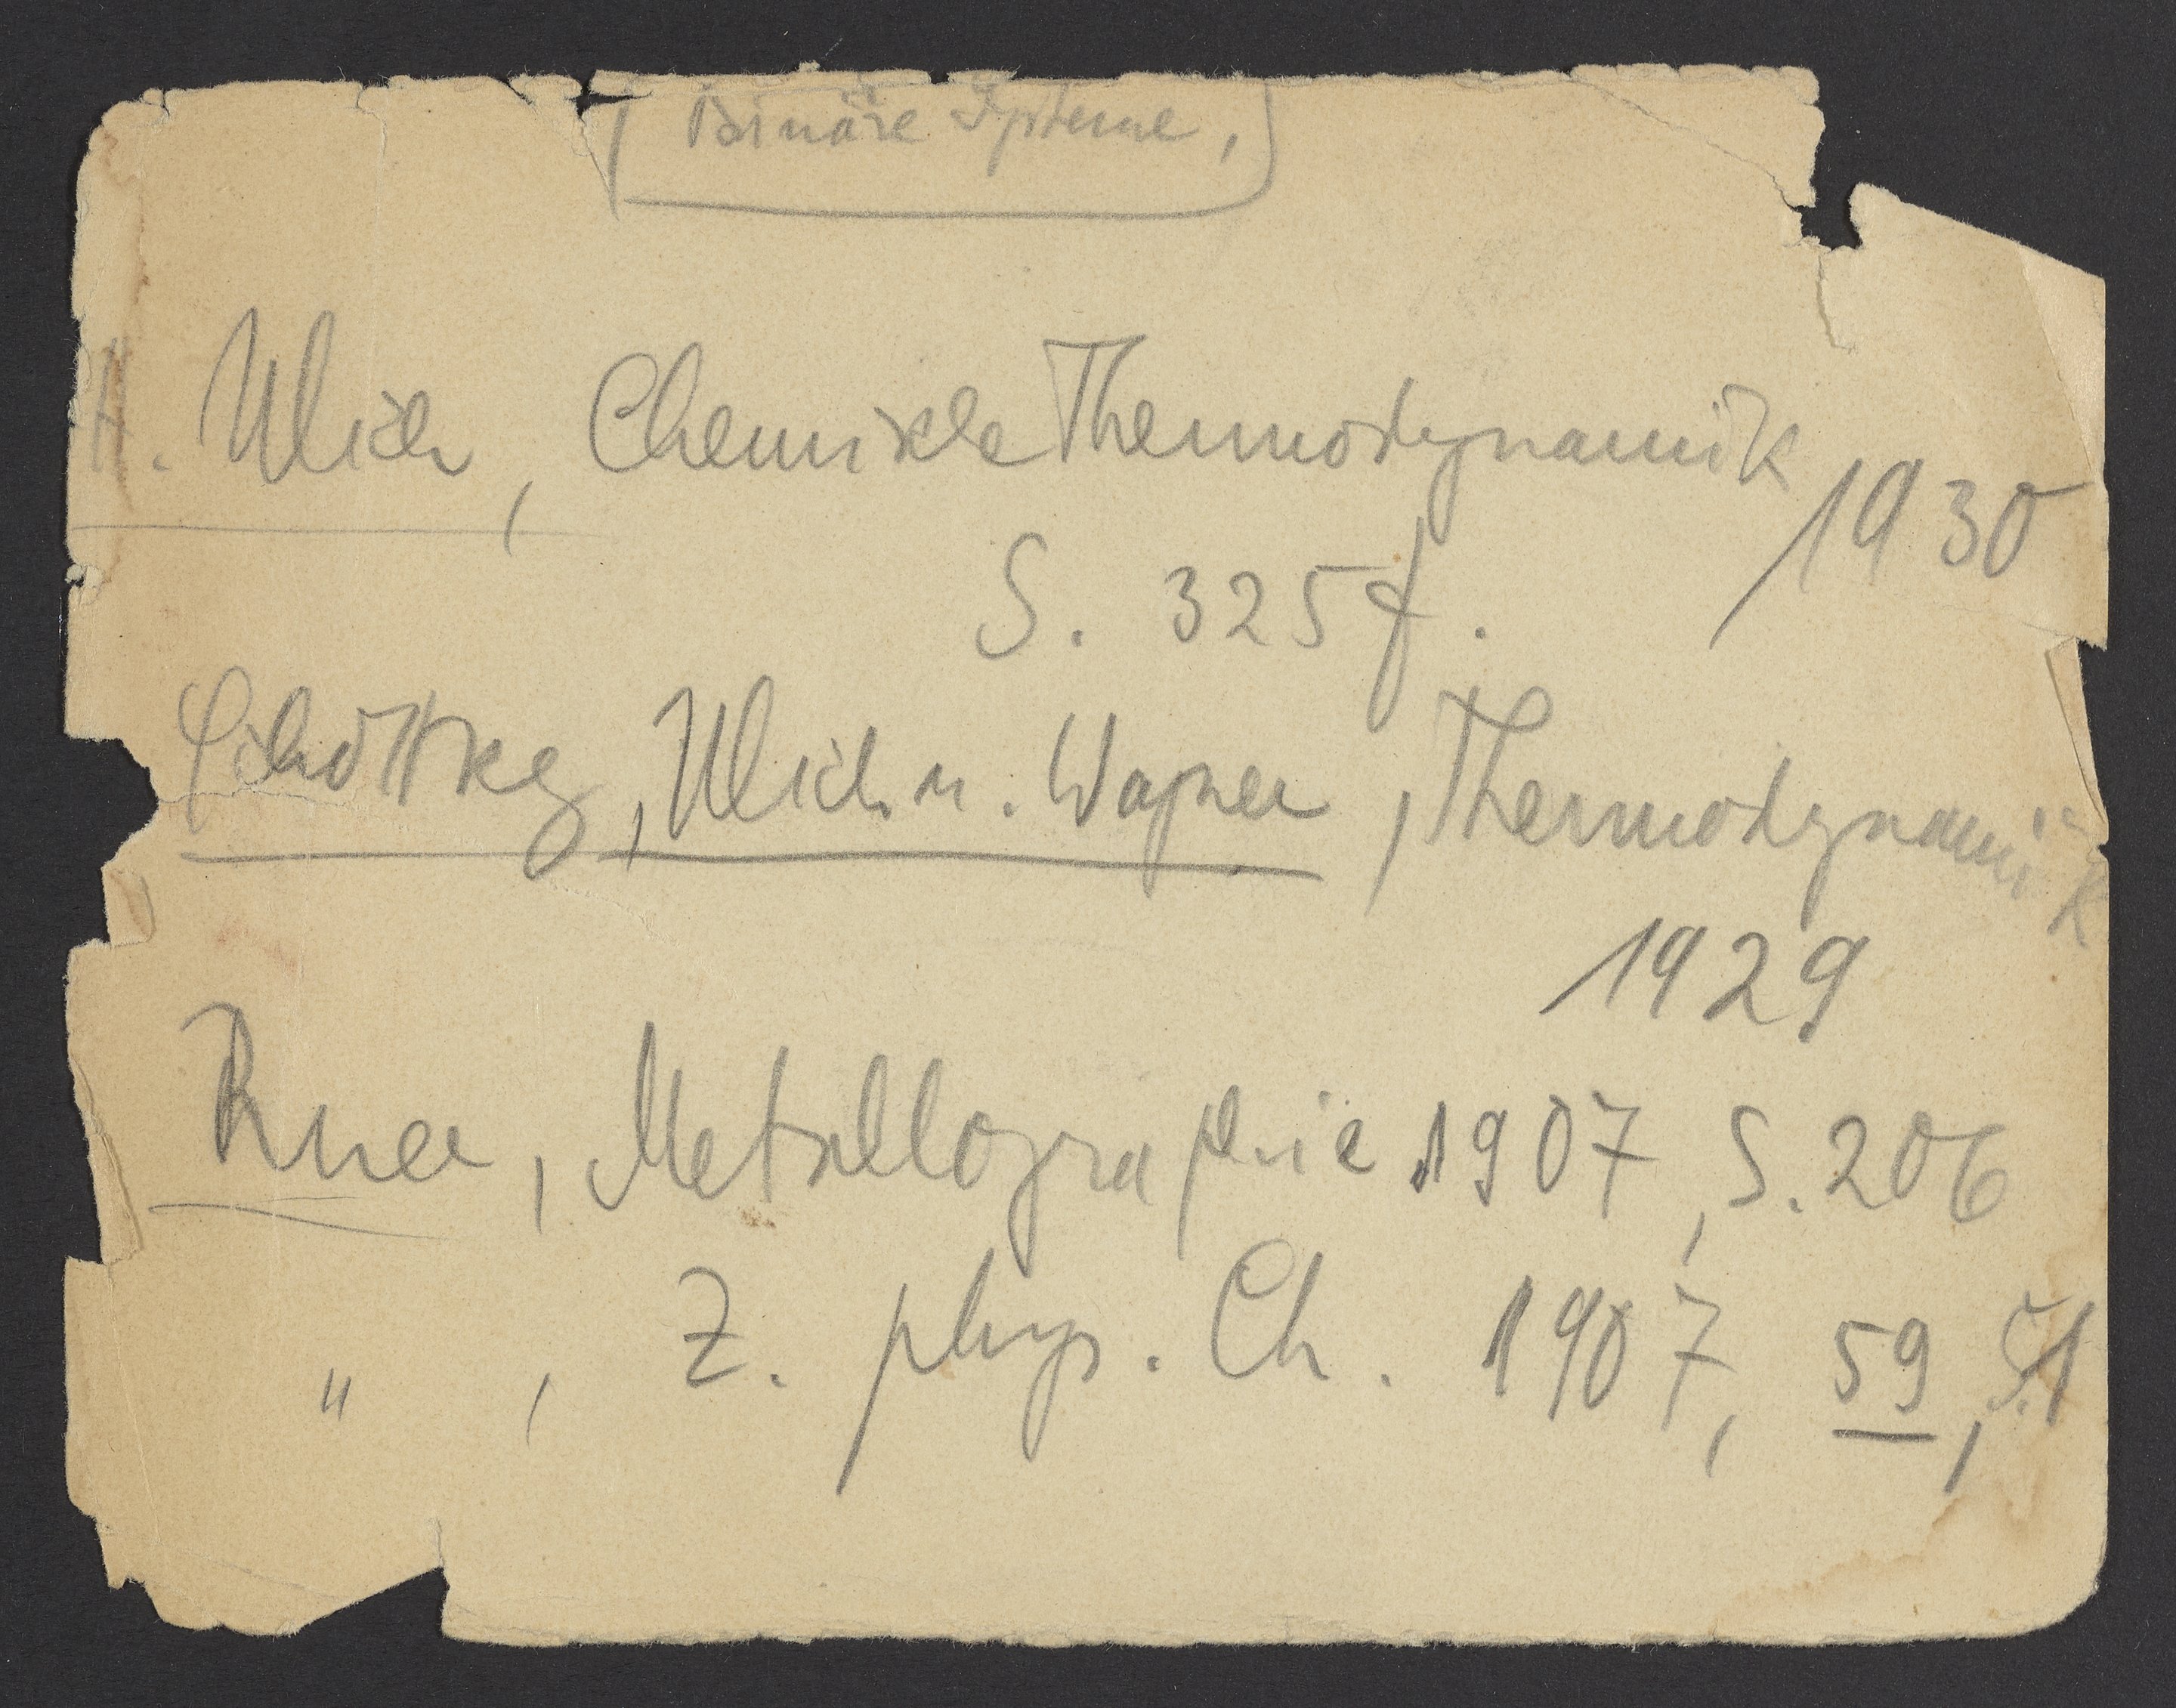 Binäre Systeme,
H. Ulich, Chemische Thermodynamik 1930
S. 325 f.
Schottky, Ulich u. Wagner, Thermodynamik
1929
Ruer, Metallographie 1907, S. 206
" , Z. phys. Ch. 1907, 59, S. 1